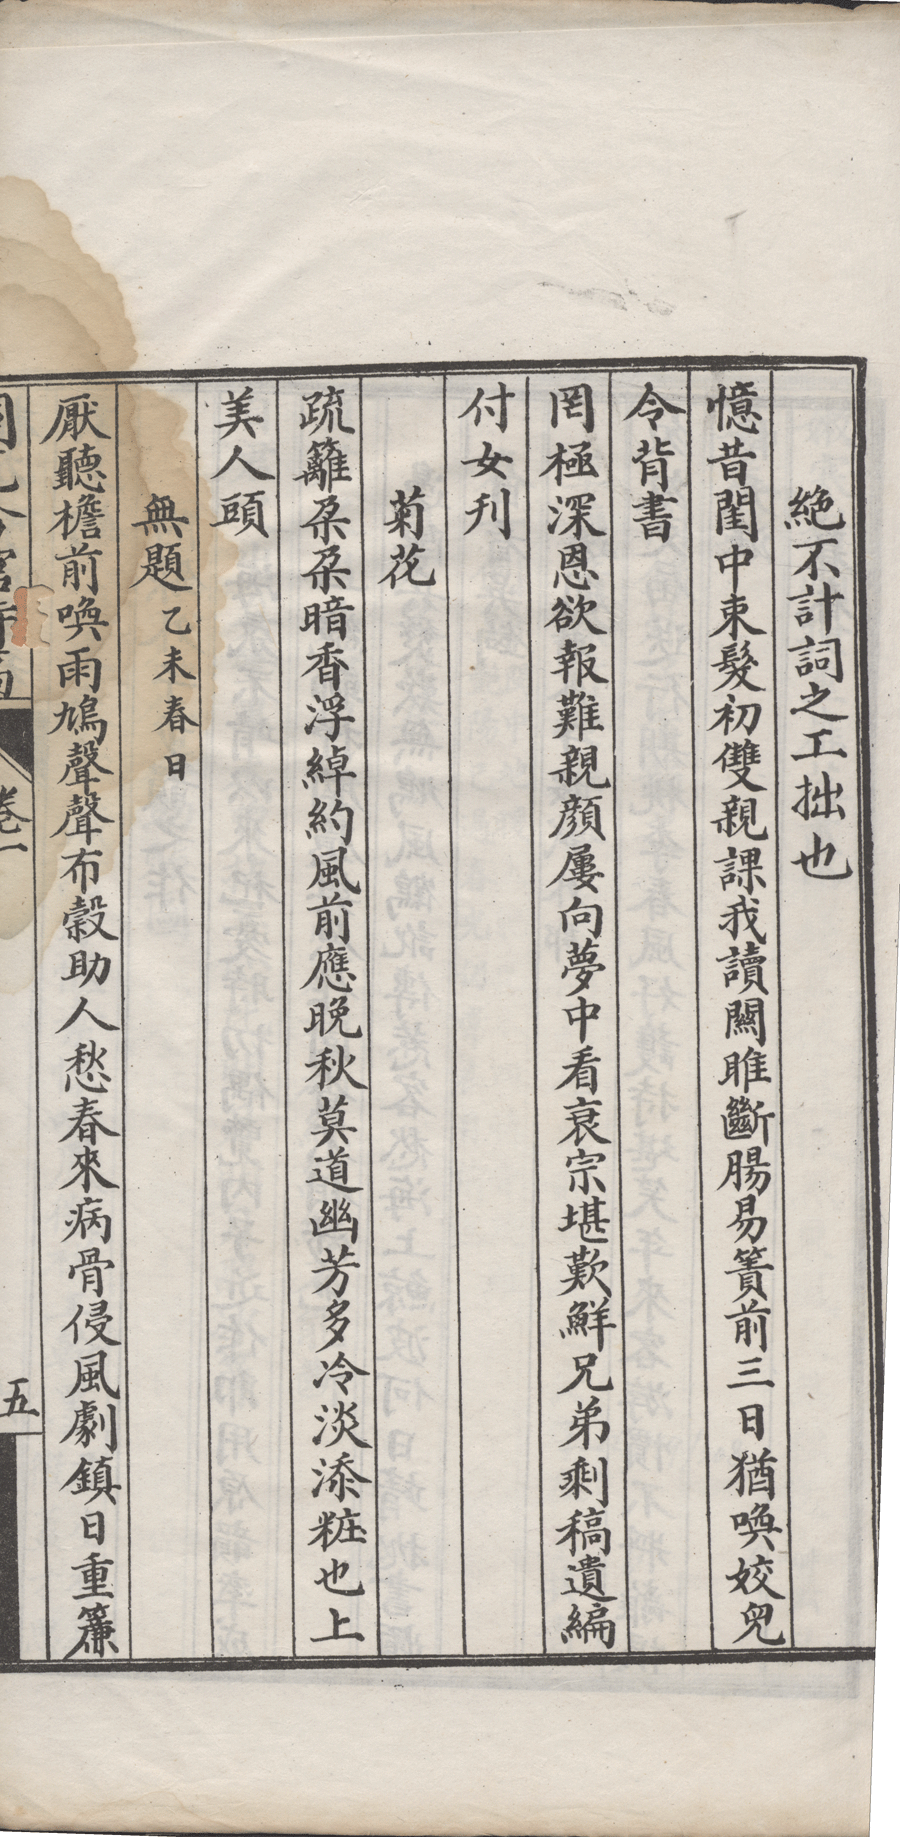 絕不計詞之工拙也
憶昔閨中束髮初雙親課我讀關雎斷腸易簀前三日猶喚姣兒
令背書
罔極深恩欲報難親顏屢向夢中看衰宗堪歎鮮兄弟剩稿遺編
付女刊
菊花
疏籬朶朶暗香浮綽約風前應晚秋莫道幽芳多冷淡添粧也上
美人頭
無題乙未春日
厭聽檐前喚雨鳩聲聲布穀助人愁春來病骨侵風劇鎮日重簾
卷一
五